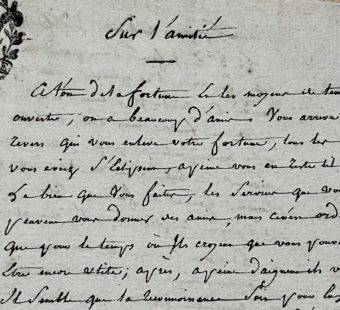 Sur l'amitié
A t'on de la fortune et les moyens de ten
ouverte, on a beaucoup d'amis Vous arriva
revers qui vous enleve votre fortune, tous les
vous s'Eclipsent, apeine vous en reste til
Le bien que Vous faites, les Services que vou
peuvent vous donner des amis, mais ceux ord
que pour le temps où Ils croyent que vous pouv
Etre encore utile; après, apeine daignent ils v
Il Semble que la reconnoissance Soit pour